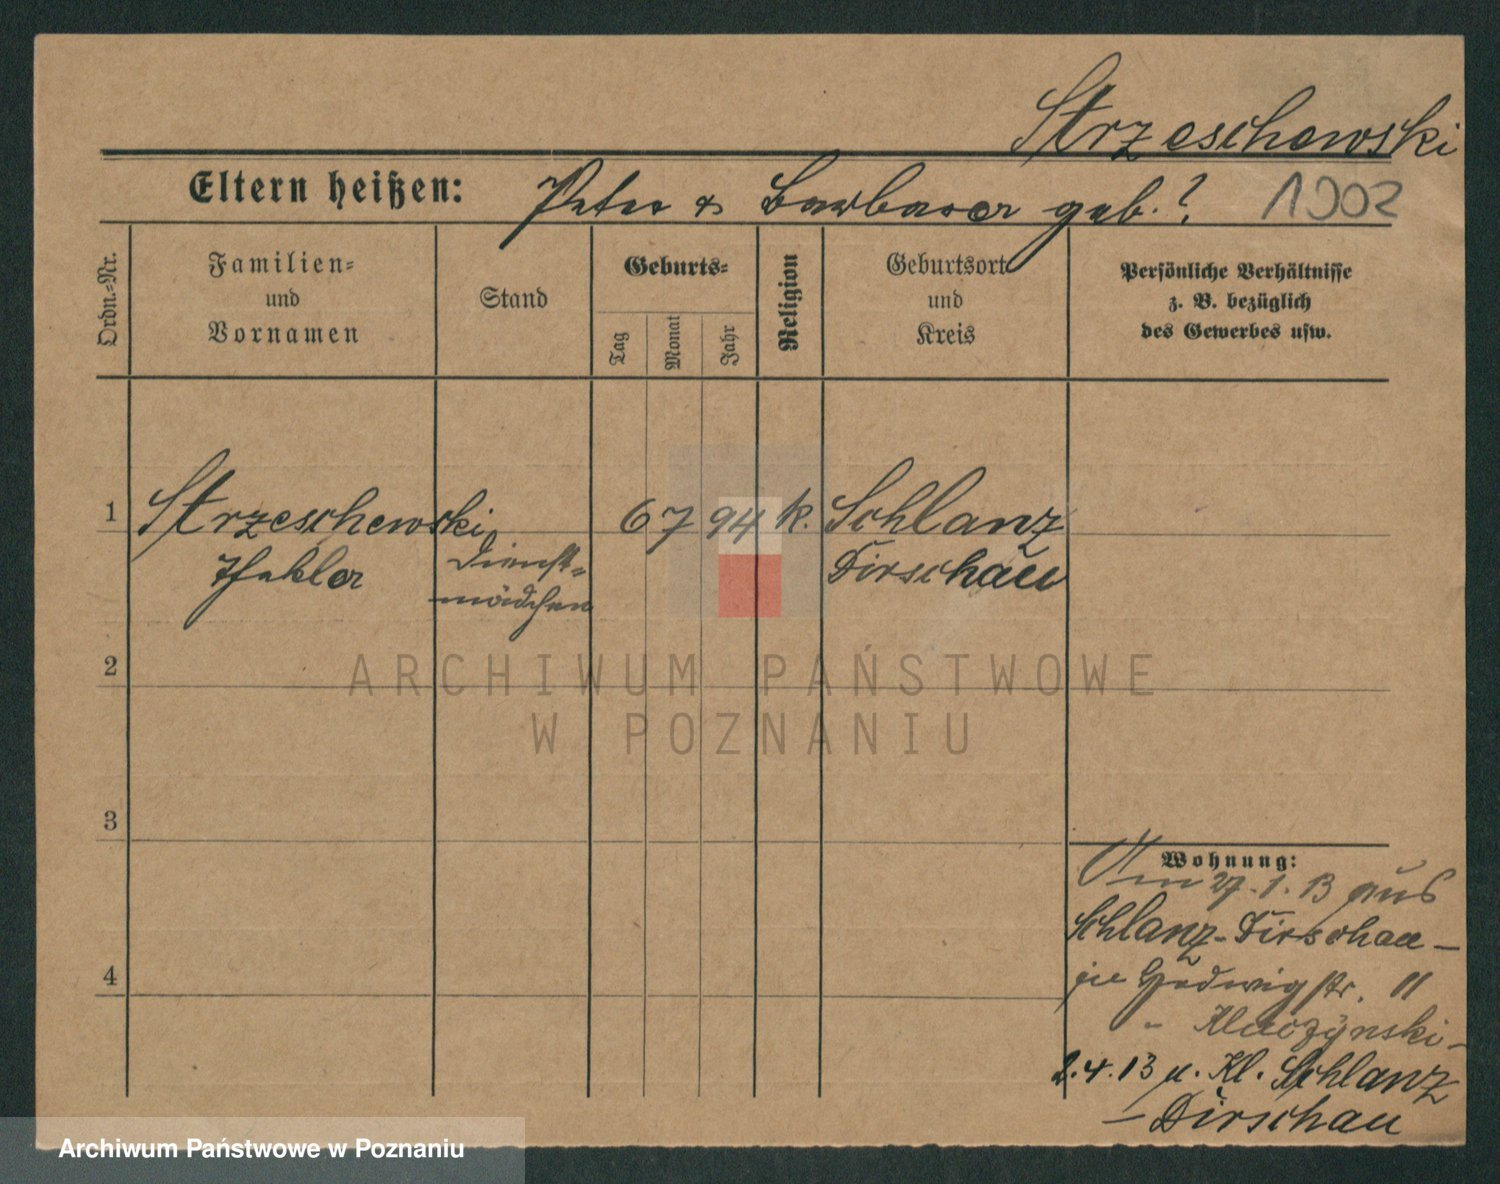 Strzeschewski
Eltern heißen: Peter & Barbara geb. ? 1902
Ordn.=Nr.
Familien=
und
Vornamen
Stand
Geburts=
Tag
Monat
Jahr
Religion
Geburtsort
und
Kreis
Persönliche Verhältnisse
z. B. bezüglich
des Gewerbes usw.
1 Strzeschewski 6 7 94 k. Schlanz
Thekla Dienst= Dirschau
mädchen
2
3
4
Wohnung:
27.1.13 aus
Schlanz-Dirschau –
Hedwigstr. 11
2.4.13 n. Kl. Schlanz
– Dirschau
ARCHIWUM PAŃSTWOWE
W POZNANIU
Archiwum Państwowe w Poznaniu